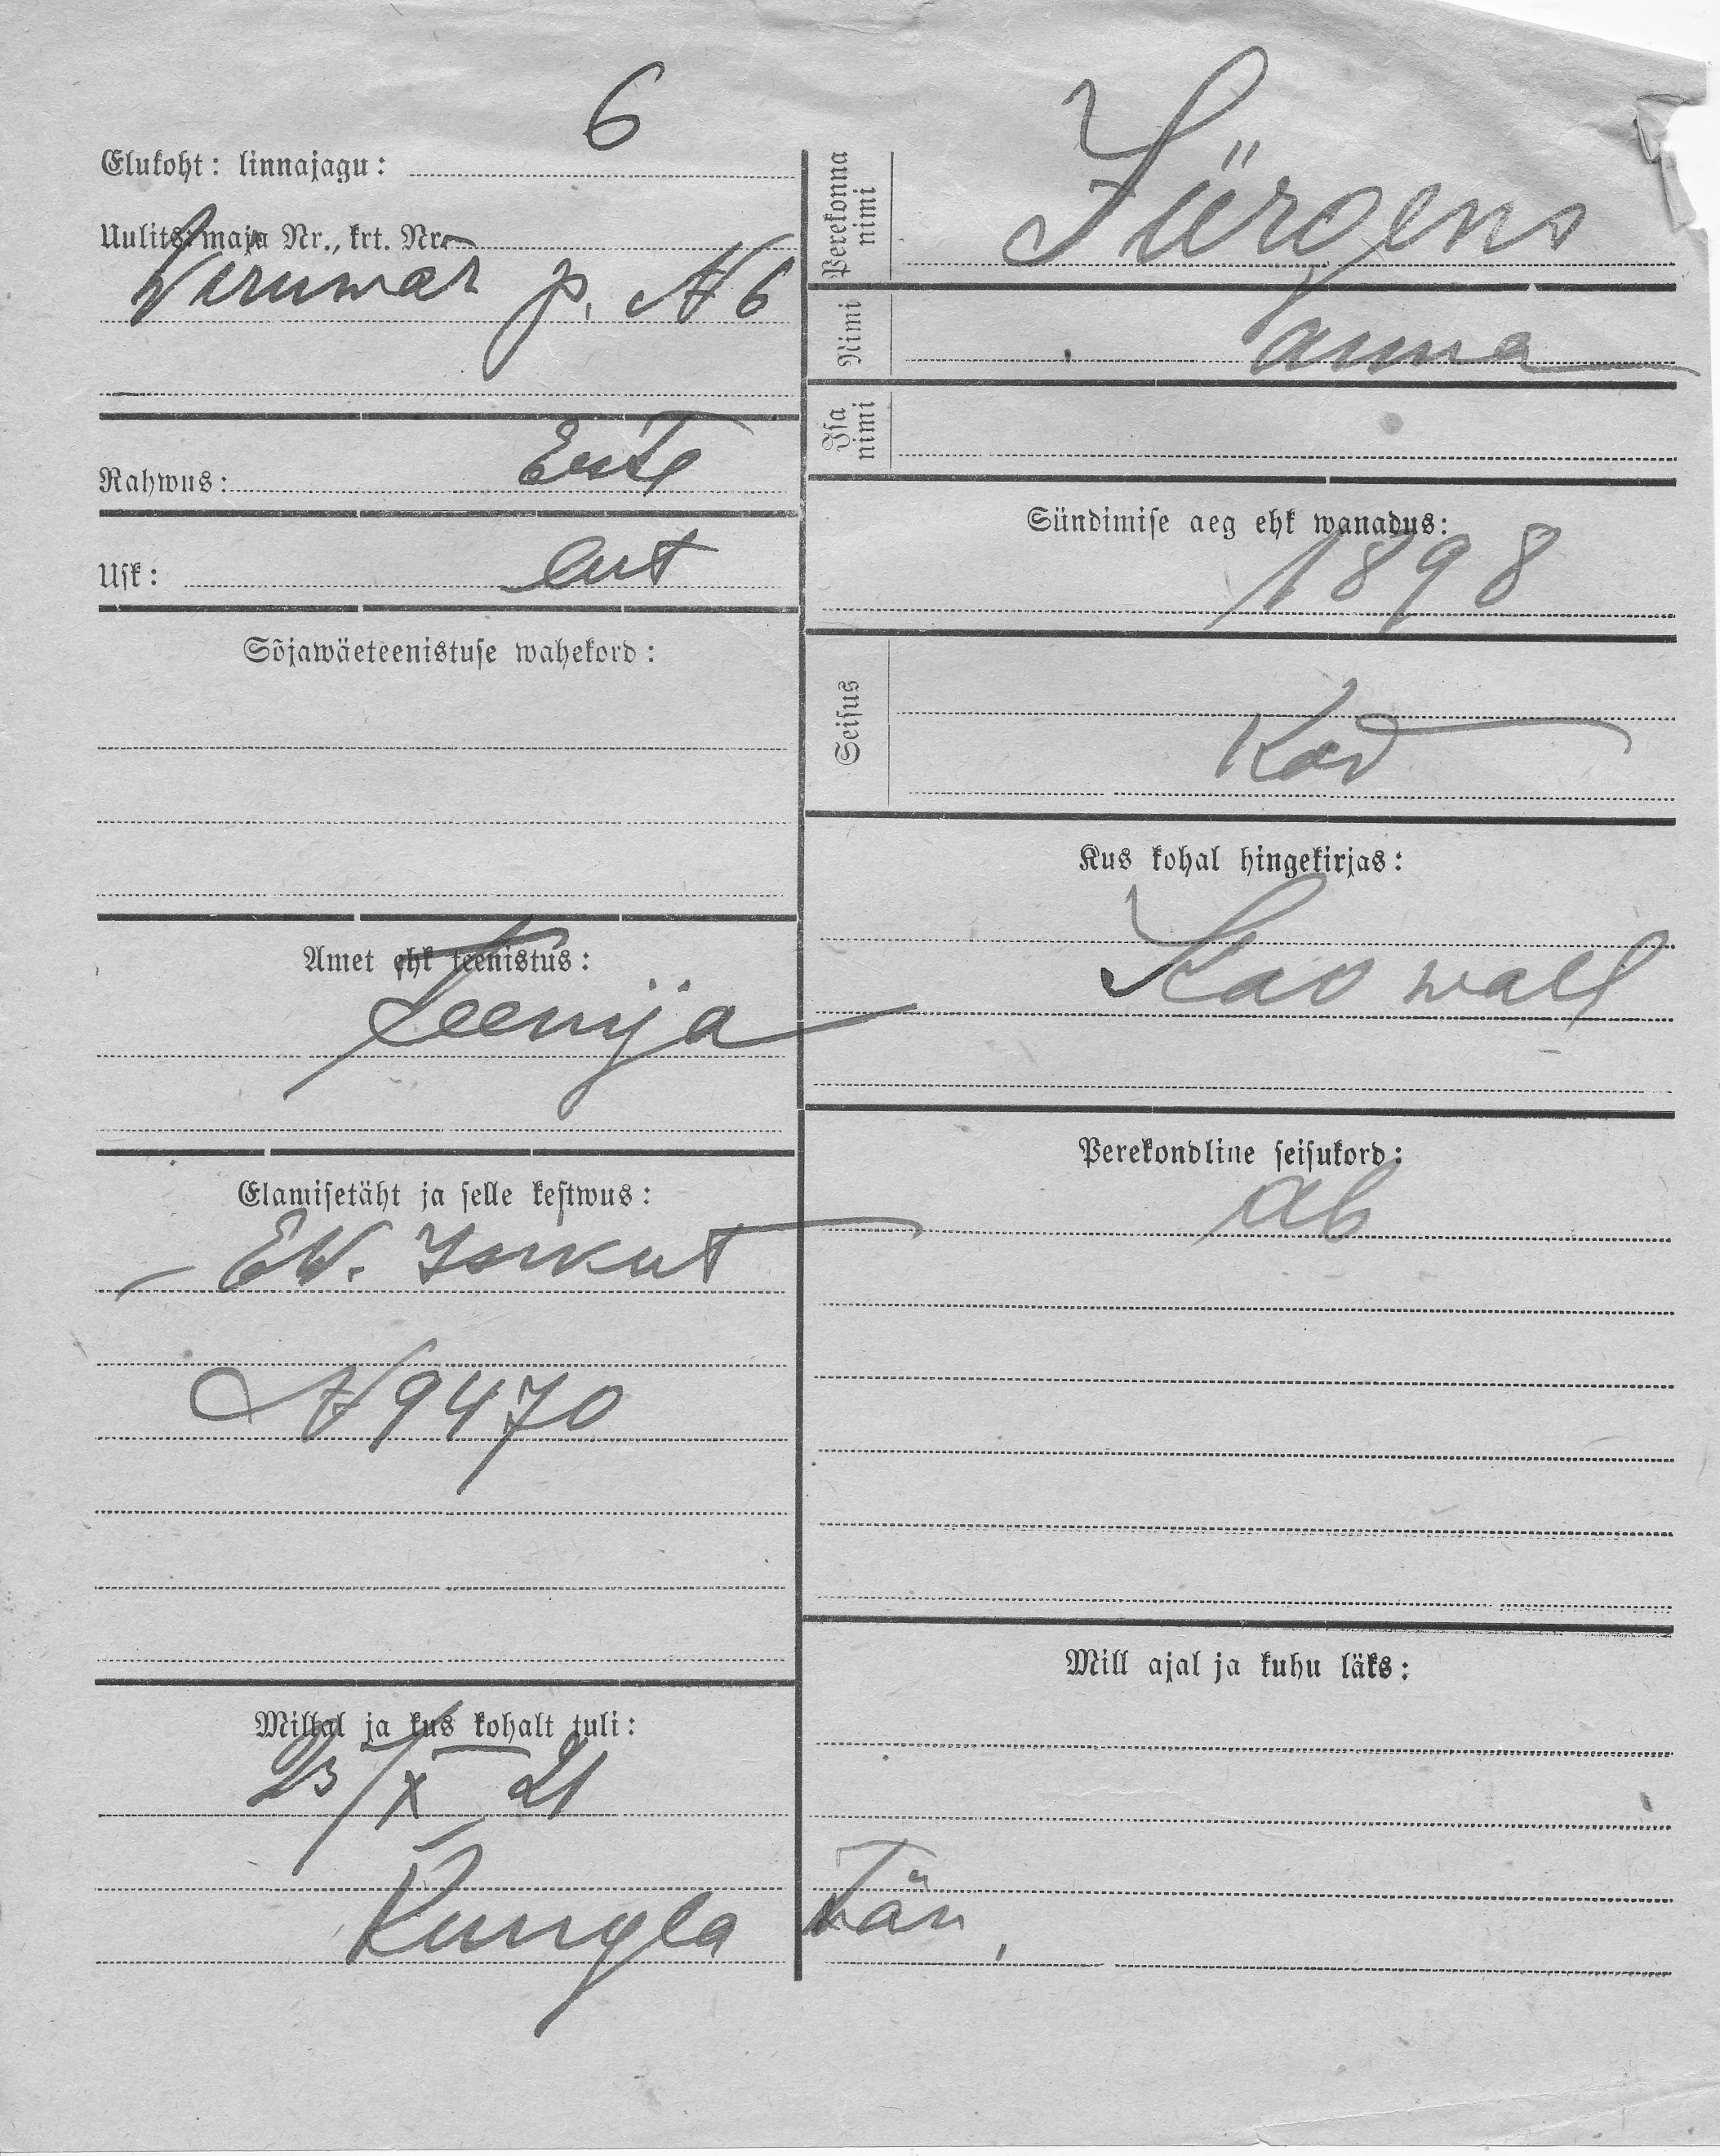 6
Elukoht: linnajagu:
Uulits, maja Nr., krt. Nr.
p. № 6
Rahwus: Eesti
Usk: lut
Sõjawäeteenistuse wahekord:
Amet ehk teenistus:
Teenija
Elamisetäht ja selle kestwus:
EW. Isikut
№ 9470
Millal ja kus kohalt tuli:
23/X 21
Kungla tän,
Perekonna nimi
Jürgens
Nimi
Anna
Isa nimi
Sündimise aeg ehk wanadus:
1898
Seisus
Kod
Kus kohal hingekirjas:
wall
Perekondline seisukord:
ab
Mill ajal ja kuhu läks: